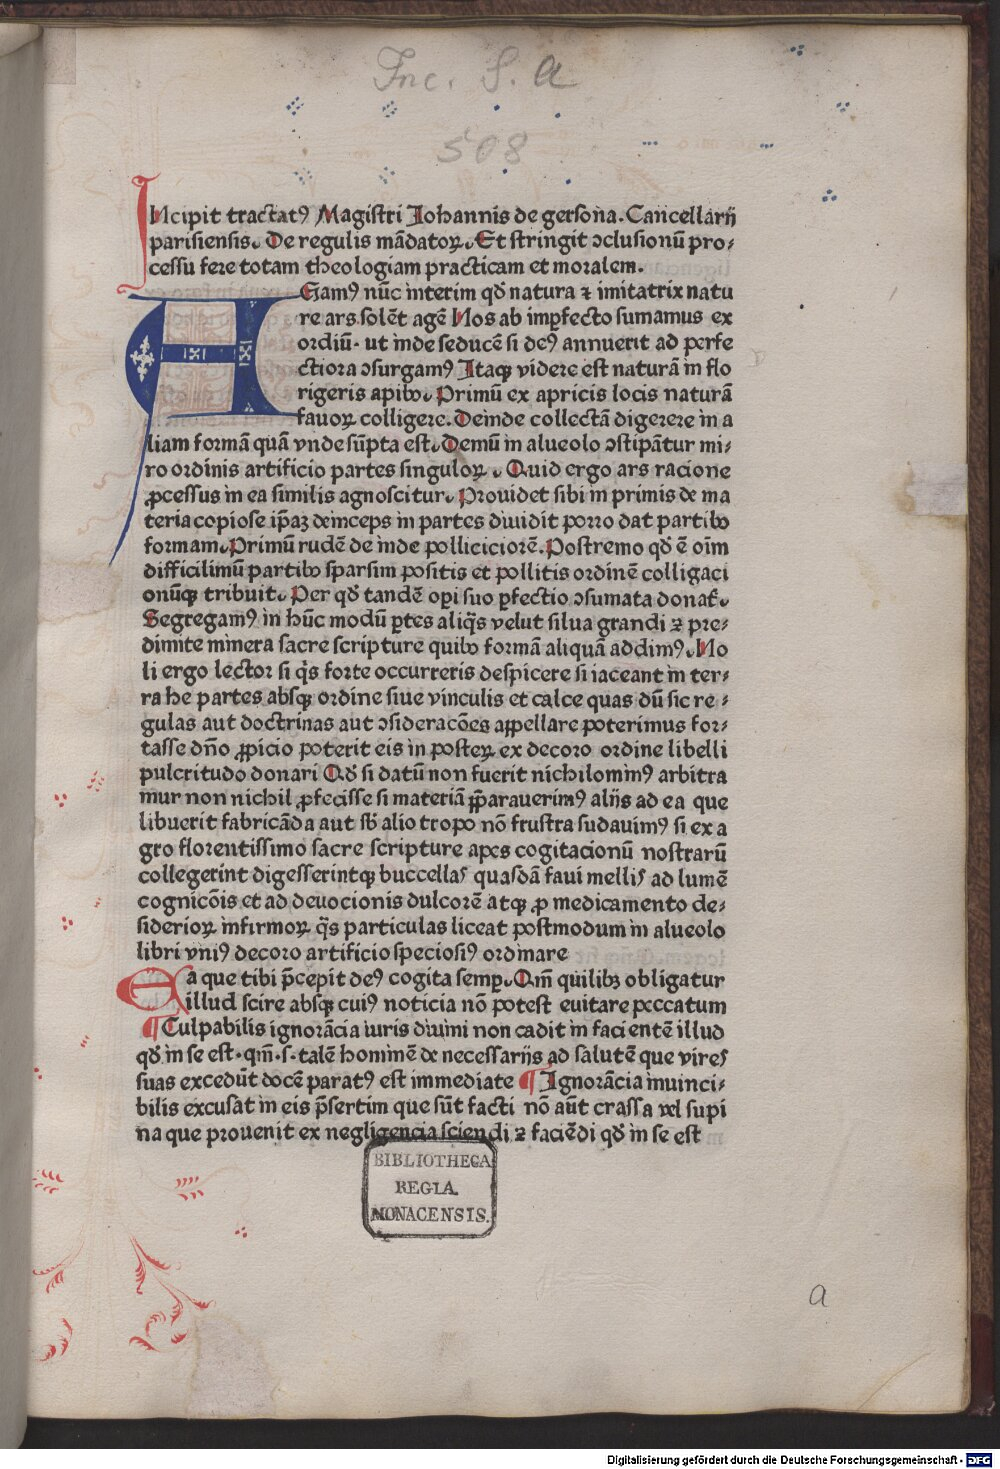 Inc. S. a
508
INcipit tractatꝰ Magistri Johannis de gersona. Cancellarij
parisiensis. De regulis mādatoꝝ. Et stringit ↄclusionū pro⸗
cessu fere totam theologiam practicam et moralem.
AGamꝰ nūc interim qđ natura ⁊ imitatrix natu
re ars solēt agē Nos ab imꝑfecto sumamus ex
ordiū· ut inde seducē si deꝰ annuerit ad perfe
ctiora ↄsurgamꝰ Itaqꝫ videre est naturā in flo
rigeris apibꝰ. Primū ex apricis locis naturā
fauoꝝ colligere. Deinde collectā digerere in a
liam formā quā vnde sūpta est. Demū in alueolo ↄstipātur mi⸗
ro ordinis artificio partes singuloꝝ. Quid ergo ars racione
ꝓcessus in ea similis agnoscitur. Prouidet sibi in primis de ma
teria copiose ip̄aꝫ deinceps in partes diuidit porro dat partibꝰ
formam. Primū rudē de inde polliciciorē. Postremo qđ ē oīm
difficilimū partibꝰ sparsim positis et pollitis ordinē colligaci
onūqꝫ tribuit. Per qđ tandē oꝑi suo ꝑfectio ↄsumata donat᷑.
Segregamꝰ in hūc modū ꝑtes aliq̄s velut silua grandi ⁊ pre⸗
dimite minera sacre scripture quibꝰ formā aliquā addimꝰ. No
li ergo lector si q̄s forte occurreris despicere si iaceant in ter⸗
ra he partes absqꝫ ordine siue vinculis et calce quas dū sic re⸗
gulas aut doctrinas aut ↄsideracōes appellare poterimus for⸗
tasse dn̄o ꝓpicio poterit eis in posteꝝ ex decoro ordine libelli
pulcritudo donari Qđ si datū non fuerit nichilominꝰ arbitra
mur non nichil ꝓfecisse si materiā p̄parauerimꝰ alijs ad ea que
libuerit fabricāda aut sb̄ alio tropo nō frustra sudauimꝰ si ex a
gro florentissimo sacre scripture apes cogitacionū nostrarū
collegerint digesserintqꝫ buccellas quasdā faui mellis ad lumē
cognicōis et ad deuocionis dulcorē atqꝫ ꝓ medicamento de⸗
siderioꝝ infirmoꝝ q̄s particulas liceat postmodum in alueolo
libri vniꝰ decoro artificio speciosiꝰ ordinare
EA que tibi p̄cepit deꝰ cogita semꝑ. Qm̄ quilibꝫ obligatur
illud scire absqꝫ cuiꝰ noticia nō potest euitare peccatum
¶ Culpabilis ignorācia iuris diuini non cadit in facientē illud
qđ in se est· qm̄·s· talē hominē de necessarijs ad salutē que vires
suas excedūt docē paratꝰ est immediate ¶ Ignorācia inuinci⸗
bilis excusat in eis p̄sertim que sūt facti nō aūt crassa vel supi
na que prouenit ex negligencia sciendi ⁊ faciēdi qđ in se est
BIBLIOTHECA
REGIA
MONACENSIS.
a
Digitalisierung gefördert durch die Deutsche Forschungsgemeinschaft - DFG